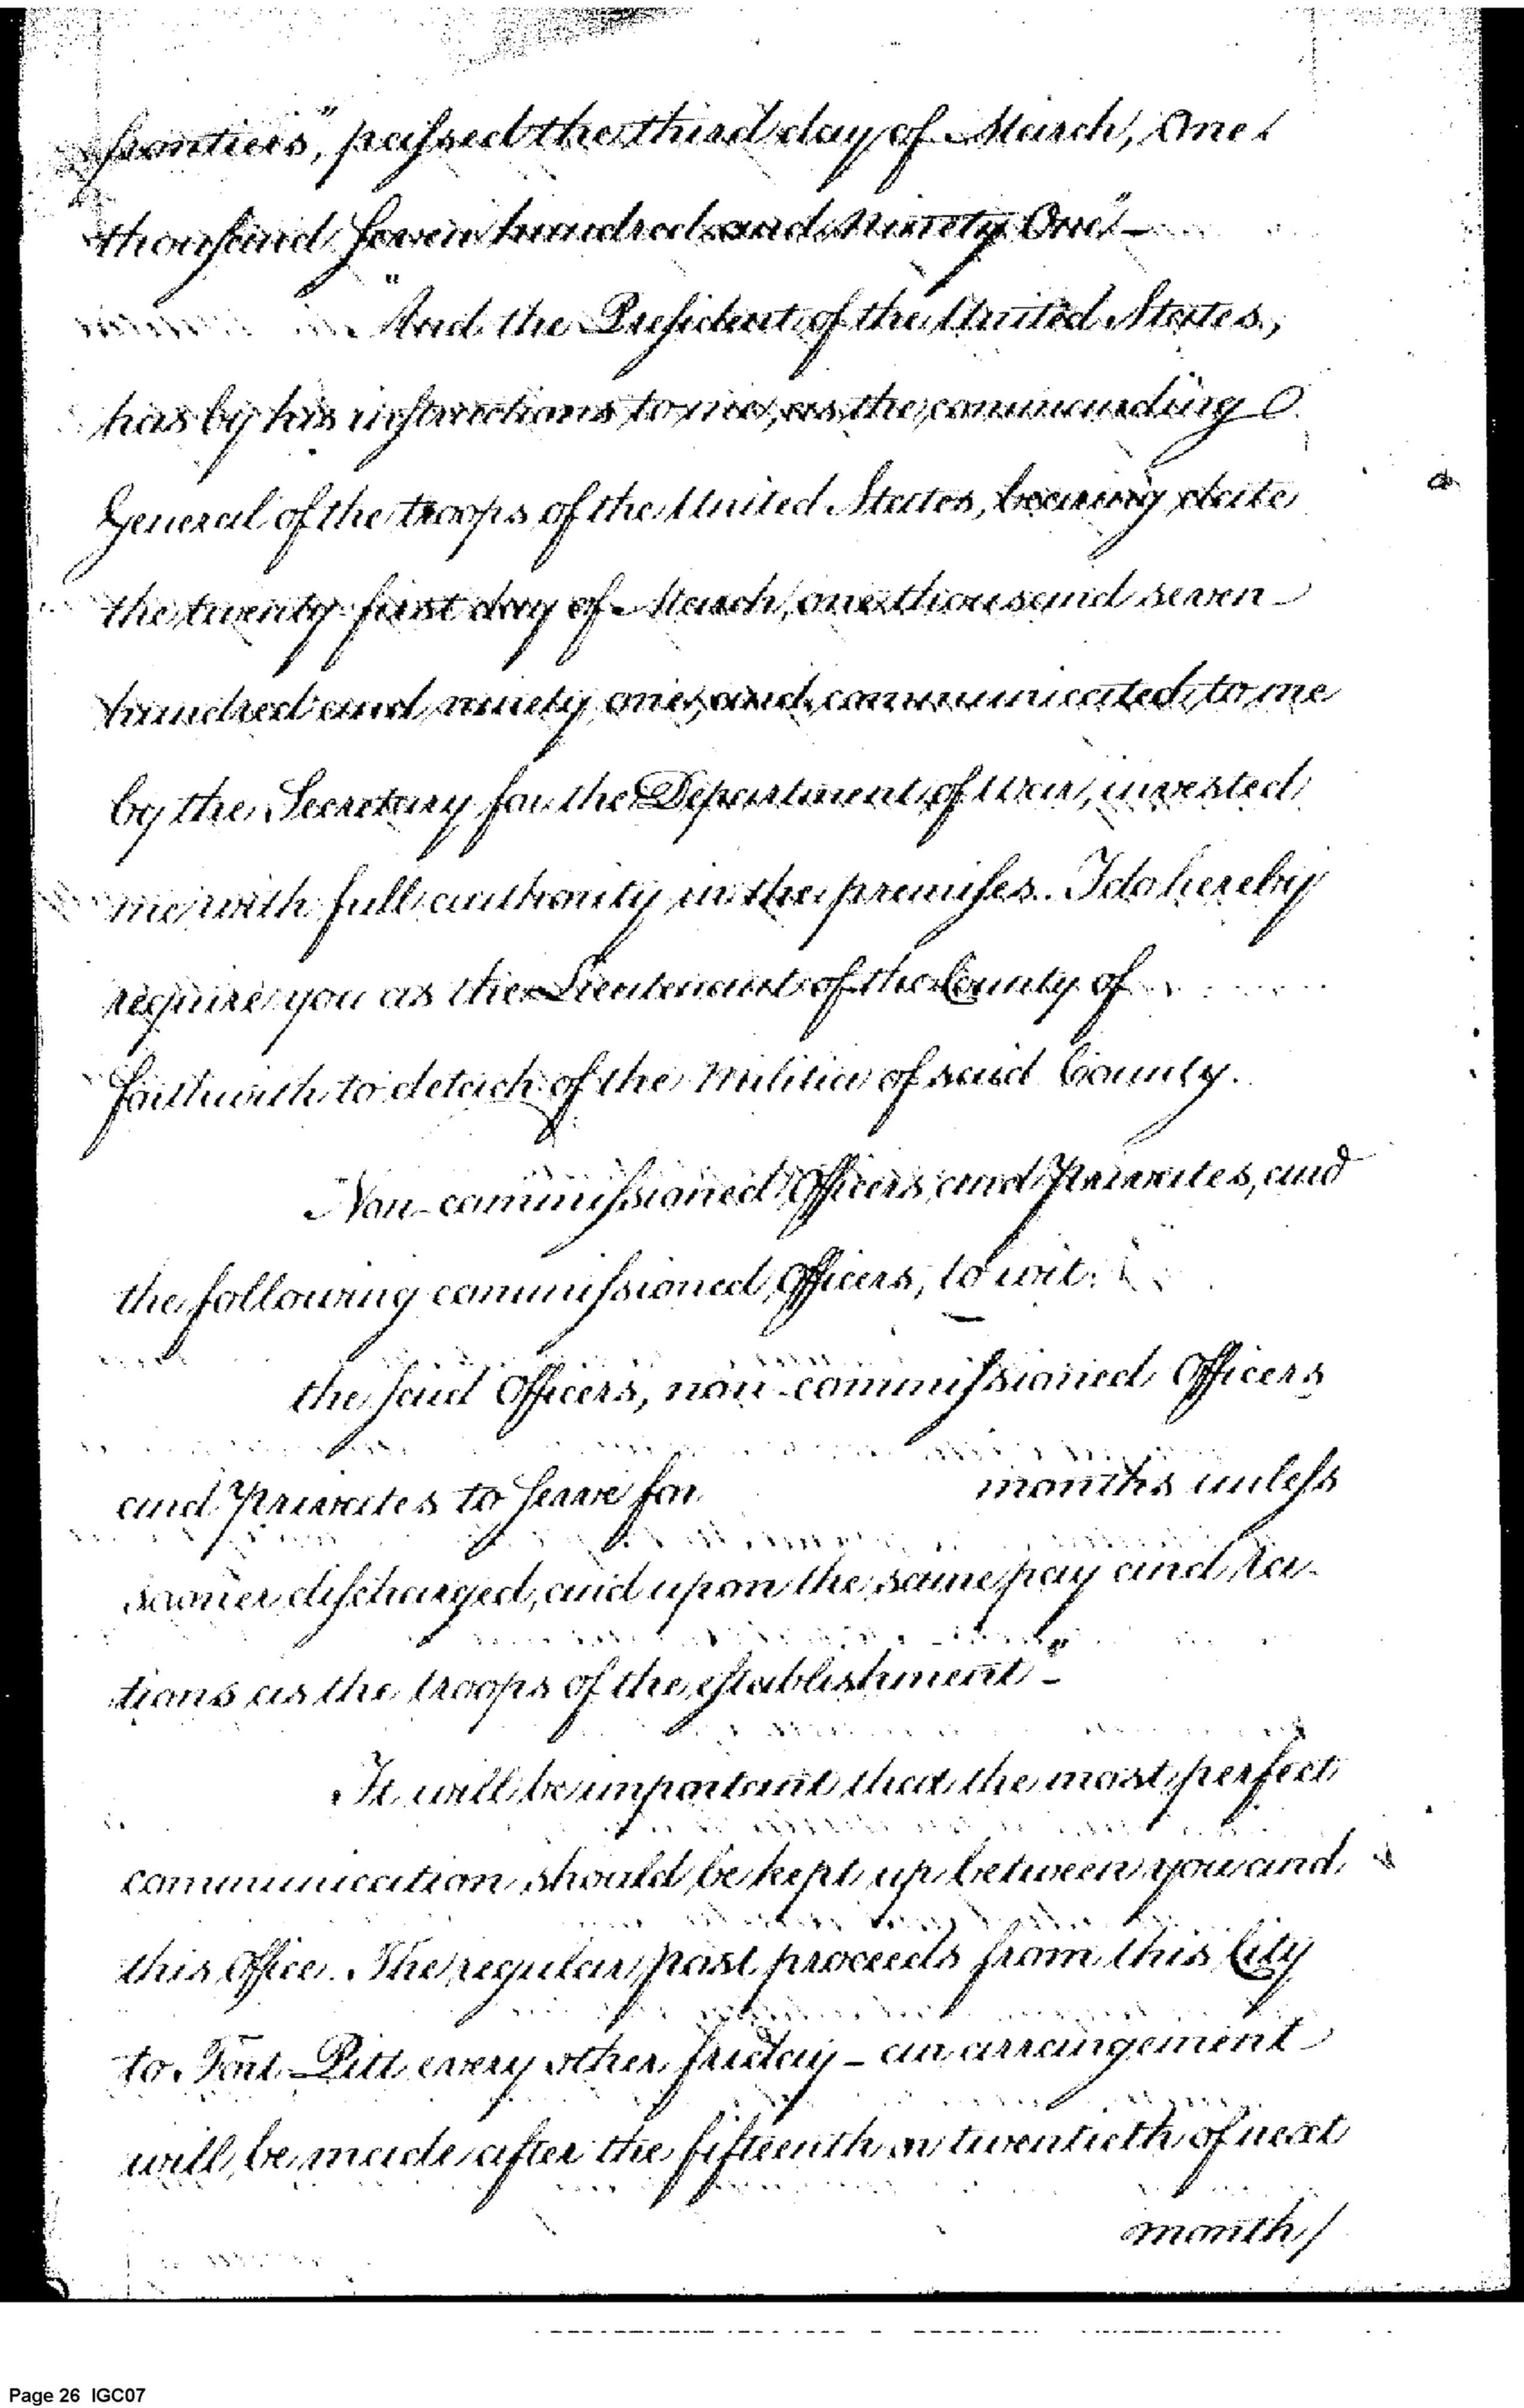 frontiers", passed the third day of March, One
thousand seven hundred and Ninety One"_
"And the President of the United States,
has by his instructions to me, as the commanding
General of the troops of the United States, bearing date
the twenty first day of March, one thousand seven
hundred and ninety one, and communicated to me
by the Secretary for the Department of War, invested
me with full authority in the premises. I do hereby
require you as the Lieutenant of the County of
forthwith to detach of the Militia of said County.
Non-commissioned Officers and Privates, and
the following commissioned Officers, to wit:
the said Officers, non-commissioned Officers
and Privates to serve for months unless
sooner discharged, and upon the same pay and ra-
tions as the troops of the establishment"_
It will be important that the most perfect
communication should be kept up between you and
this Office. The regular post proceeds from this City
to Fort Pitt every other friday_ an arrangement
will be made after the fifteenth or twentieth of next
month/
Page 26 IGC07